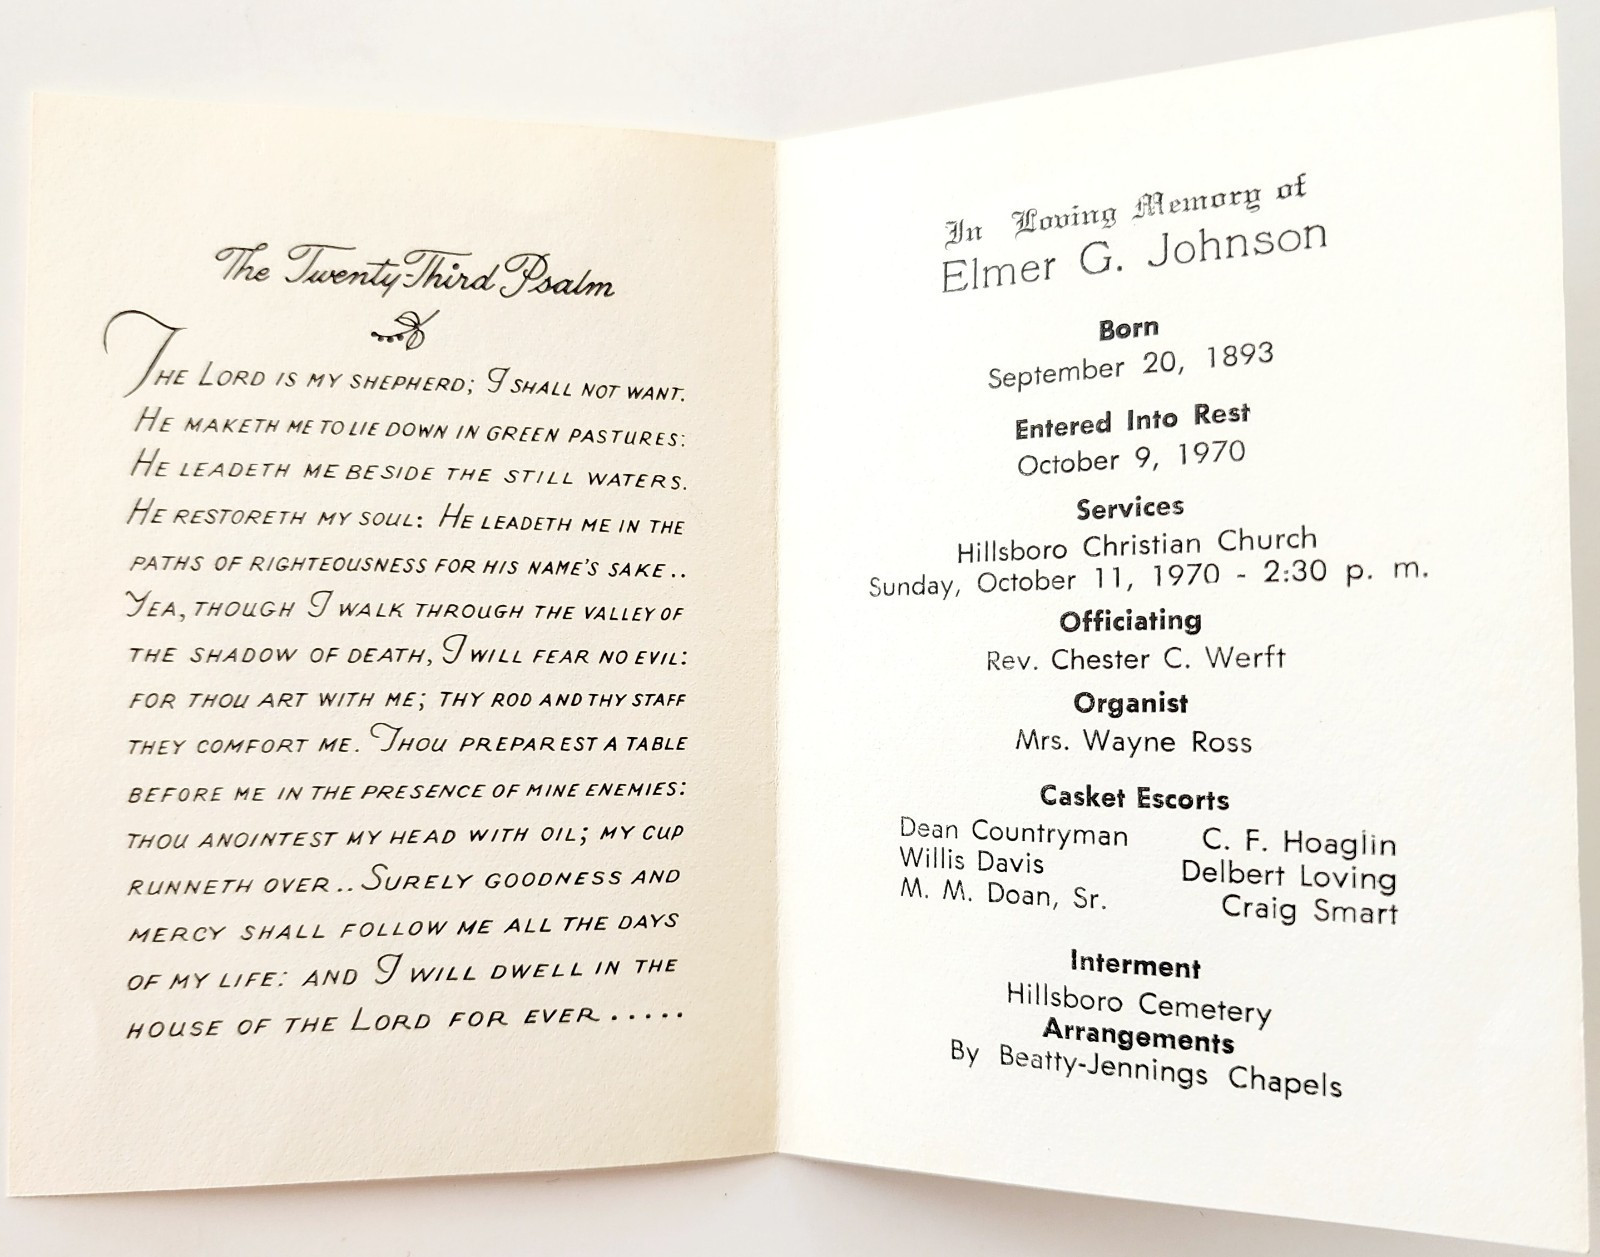 The Twenty-Third Psalm
THE LORD IS MY SHEPHERD; I SHALL NOT WANT.
HE MAKETH ME TO LIE DOWN IN GREEN PASTURES:
HE LEADETH ME BESIDE THE STILL WATERS.
HE RESTORETH MY SOUL: HE LEADETH ME IN THE
PATHS OF RIGHTEOUSNESS FOR HIS NAME'S SAKE..
YEA, THOUGH I WALK THROUGH THE VALLEY OF
THE SHADOW OF DEATH, I WILL FEAR NO EVIL:
FOR THOU ART WITH ME; THY ROD AND THY STAFF
THEY COMFORT ME. THOU PREPAREST A TABLE
BEFORE ME IN THE PRESENCE OF MINE ENEMIES:
THOU ANOINTEST MY HEAD WITH OIL; MY CUP
RUNNETH OVER.. SURELY GOODNESS AND
MERCY SHALL FOLLOW ME ALL THE DAYS
OF MY LIFE: AND I WILL DWELL IN THE
HOUSE OF THE LORD FOR EVER.....
In Loving Memory of
Elmer G. Johnson
Born
September 20, 1893
Entered Into Rest
October 9, 1970
Services
Hillsboro Christian Church
Sunday, October 11, 1970 - 2:30 p. m.
Officiating
Rev. Chester C. Werft
Organist
Mrs. Wayne Ross
Casket Escorts
Dean Countryman C. F. Hoaglin
Willis Davis Delbert Loving
M. M. Doan, Sr. Craig Smart
Interment
Hillsboro Cemetery
Arrangements
By Beatty-Jennings Chapels